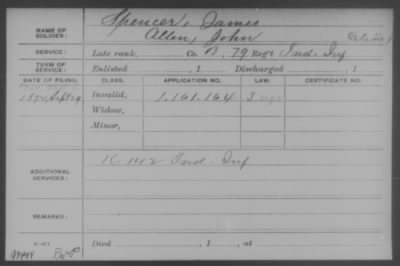 NAME OF SOLDIER: Spencer, James
Allen, John (alias)
SERVICE: Late rank, Co. B, 79 Reg't Ind. Inf
TERM OF SERVICE: Enlisted , 1 Discharged , 1
DATE OF FILING. CLASS. APPLICATION NO. LAW. CERTIFICATE NO.
1894, Sept 29 Invalid, 1,161,164
Widow,
Minor,
ADDITIONAL SERVICES: K 142 Ind. Inf
REMARKS:
Died , 1 , at